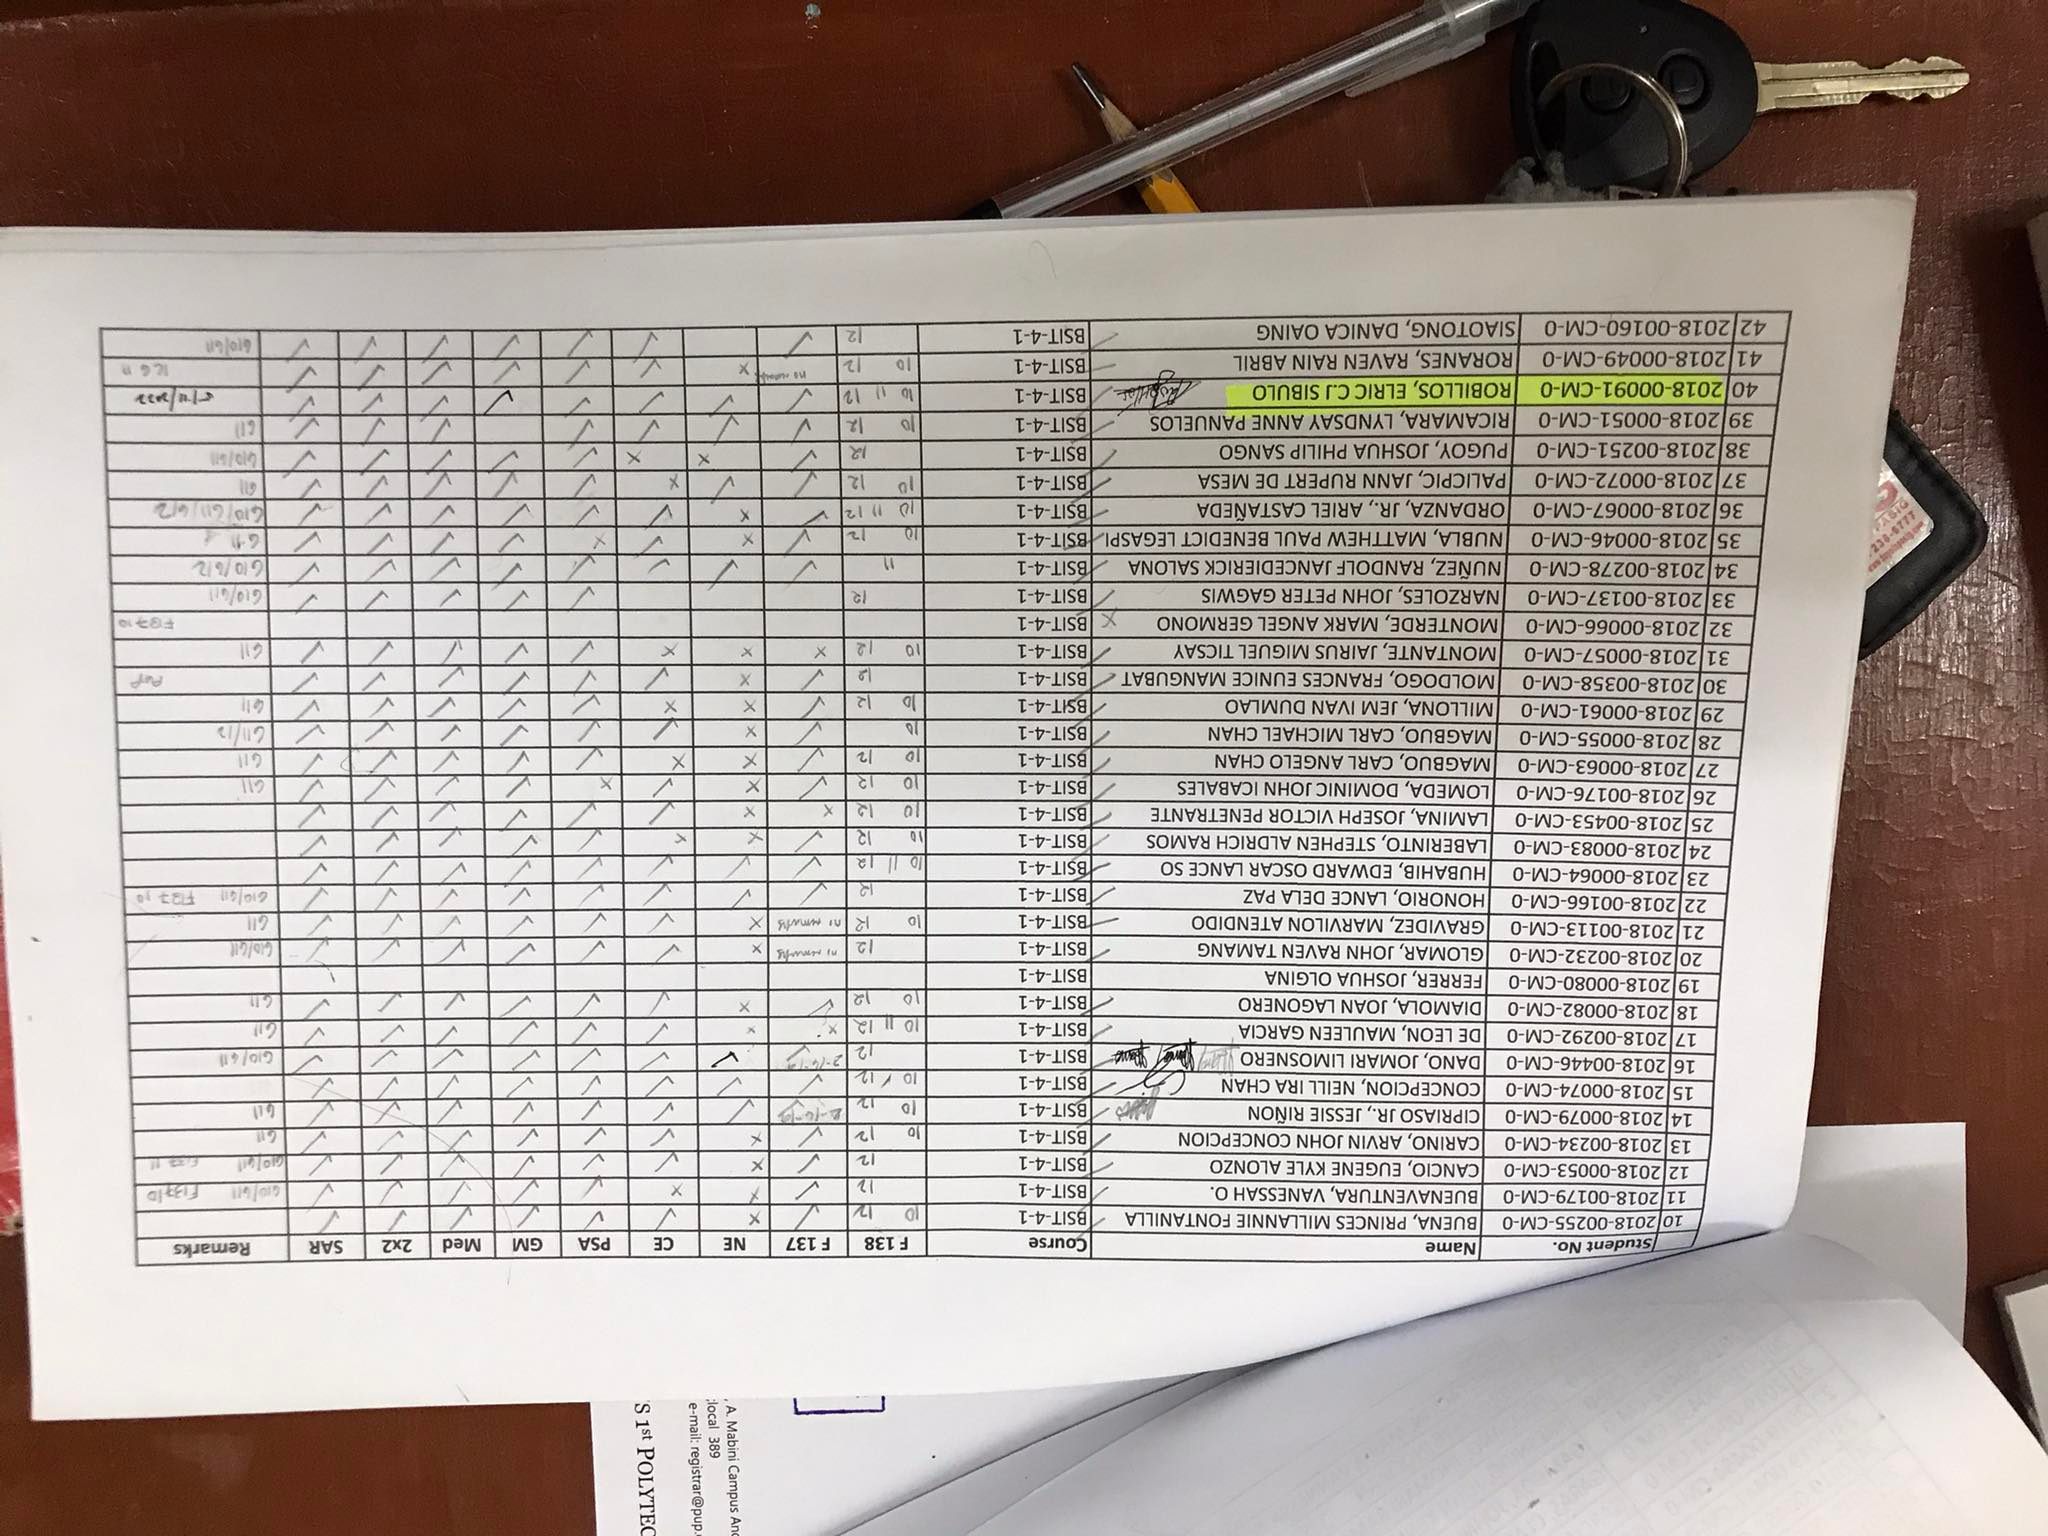 , A. Mabini Campus
local 389
e-mail: registrar@pup.
'S 1st POLYTEC
Student No. Name Course F 138 F 137 NE CE PSA GM Med 2x2 SAR Remarks
10 2018-00255-CM-0 BUENA, PRINCES MILLANNIE FONTANILLA BSIT-4-1 10 12 ✓ x ✓ ✓ ✓ ✓ ✓ ✓
11 2018-00179-CM-0 BUENAVENTURA, VANESSAH O. BSIT-4-1 12 ✓ x x ✓ ✓ ✓ ✓ ✓ G10/G11 F137 10
12 2018-00053-CM-0 CANCIO, EUGENE KYLE ALONZO BSIT-4-1 12 ✓ x ✓ ✓ ✓ ✓ ✓ ✓ G10/G11 F137 11
13 2018-00234-CM-0 CARINO, ARVIN JOHN CONCEPCION BSIT-4-1 10 12 ✓ x ✓ ✓ ✓ ✓ ✓ ✓ G11
14 2018-00079-CM-0 CIPRIASO JR., JESSIE RIÑON BSIT-4-1 10 12 ✓ ✓ ✓ ✓ ✓ ✓ ✓ ✓ G11
15 2018-00074-CM-0 CONCEPCION, NEILL IRA CHAN BSIT-4-1 10 ✓ 12 ✓ ✓ ✓ ✓ ✓ ✓ ✓ ✓
16 2018-00446-CM-0 DANO, JOMARI LIMOSNERO BSIT-4-1 12 ✓ ✓ ✓ ✓ ✓ ✓ ✓ ✓ G10/G11
17 2018-00292-CM-0 DE LEON, MAULEEN GARCIA BSIT-4-1 10 11 12 x x ✓ ✓ ✓ ✓ ✓ ✓ G11
18 2018-00082-CM-0 DIAMOLA, JOAN LAGONERO BSIT-4-1 10 12 ✓ x ✓ ✓ ✓ ✓ ✓ ✓ G11
19 2018-00080-CM-0 FERRER, JOSHUA OLGINA BSIT-4-1
20 2018-00232-CM-0 GLOMAR, JOHN RAVEN TAMANG BSIT-4-1 12 no remarks x ✓ ✓ ✓ ✓ ✓ ✓ G10/G11
21 2018-00113-CM-0 GRAVIDEZ, MARVILON ATENDIDO BSIT-4-1 10 12 no remarks x ✓ ✓ ✓ ✓ ✓ ✓ G11
22 2018-00166-CM-0 HONORIO, LANCE DELA PAZ BSIT-4-1 12 ✓ ✓ ✓ ✓ ✓ ✓ ✓ ✓ G10/G11 F137 10
23 2018-00064-CM-0 HUBAHIB, EDWARD OSCAR LANCE SO BSIT-4-1 10 11 12 ✓ ✓ ✓ ✓ ✓ ✓ ✓ ✓
24 2018-00083-CM-0 LABERINTO, STEPHEN ALDRICH RAMOS BSIT-4-1 10 12 ✓ x x ✓ ✓ ✓ ✓ ✓
25 2018-00453-CM-0 LAMINA, JOSEPH VICTOR PENETRANTE BSIT-4-1 10 12 x x ✓ ✓ ✓ ✓ ✓ ✓
26 2018-00176-CM-0 LOMEDA, DOMINIC JOHN ICABALES BSIT-4-1 10 12 ✓ x ✓ x ✓ ✓ ✓ ✓ G11
27 2018-00063-CM-0 MAGBUO, CARL ANGELO CHAN BSIT-4-1 10 12 ✓ x x ✓ ✓ ✓ ✓ ✓ G11
28 2018-00055-CM-0 MAGBUO, CARL MICHAEL CHAN BSIT-4-1 10 ✓ x ✓ ✓ ✓ ✓ ✓ ✓ G11/12
29 2018-00061-CM-0 MILLONA, JEM IVAN DUMLAO BSIT-4-1 10 12 ✓ x x ✓ ✓ ✓ ✓ ✓ G11
30 2018-00358-CM-0 MOLDOGO, FRANCES EUNICE MANGUBAT BSIT-4-1 12 ✓ x ✓ ✓ ✓ ✓ ✓ ✓ PUP
31 2018-00057-CM-0 MONTANTE, JAIRUS MIGUEL TICSAY BSIT-4-1 10 12 x x x ✓ ✓ ✓ ✓ ✓ G11
32 2018-00066-CM-0 MONTERDE, MARK ANGEL GERMONO x BSIT-4-1 F137 10
33 2018-00137-CM-0 NARZOLES, JOHN PETER GAGWIS BSIT-4-1 12 ✓ ✓ ✓ ✓ ✓ G10/G11
34 2018-00278-CM-0 NUÑEZ, RANDOLF JANCEDIERICK SALONA BSIT-4-1 11 ✓ ✓ ✓ ✓ ✓ ✓ ✓ ✓ G10/G12
35 2018-00046-CM-0 NUBLA, MATTHEW PAUL BENEDICT LEGASPI BSIT-4-1 10 12 ✓ x ✓ x ✓ ✓ ✓ ✓ G11
36 2018-00067-CM-0 ORDANZA, JR., ARIEL CASTAÑEDA BSIT-4-1 10 11 12 ✓ x ✓ ✓ ✓ ✓ ✓ ✓ G10/G11/G12
37 2018-00072-CM-0 PALICPIC, JANN RUPERT DE MESA BSIT-4-1 10 12 ✓ ✓ x ✓ ✓ ✓ ✓ ✓ G11
38 2018-00251-CM-0 PUGOY, JOSHUA PHILIP SANGO BSIT-4-1 12 ✓ x x ✓ ✓ ✓ ✓ ✓ G10/G11
39 2018-00051-CM-0 RICAMARA, LYNDSAY ANNE PANUELOS BSIT-4-1 10 12 ✓ ✓ ✓ ✓ ✓ ✓ ✓ G11
40 2018-00091-CM-0 ROBILLOS, ELRIC C.J SIBULO BSIT-4-1 10 11 12 ✓ ✓ ✓ ✓ ✓ ✓ ✓ ✓ 5/11/2022
41 2018-00049-CM-0 RORANES, RAVEN RAIN ABRIL BSIT-4-1 10 12 no remarks x ✓ ✓ ✓ ✓ ✓ ✓
42 2018-00160-CM-0 SIAOTONG, DANICA OAING BSIT-4-1 12 ✓ ✓ ✓ ✓ ✓ ✓ ✓ G10/G11